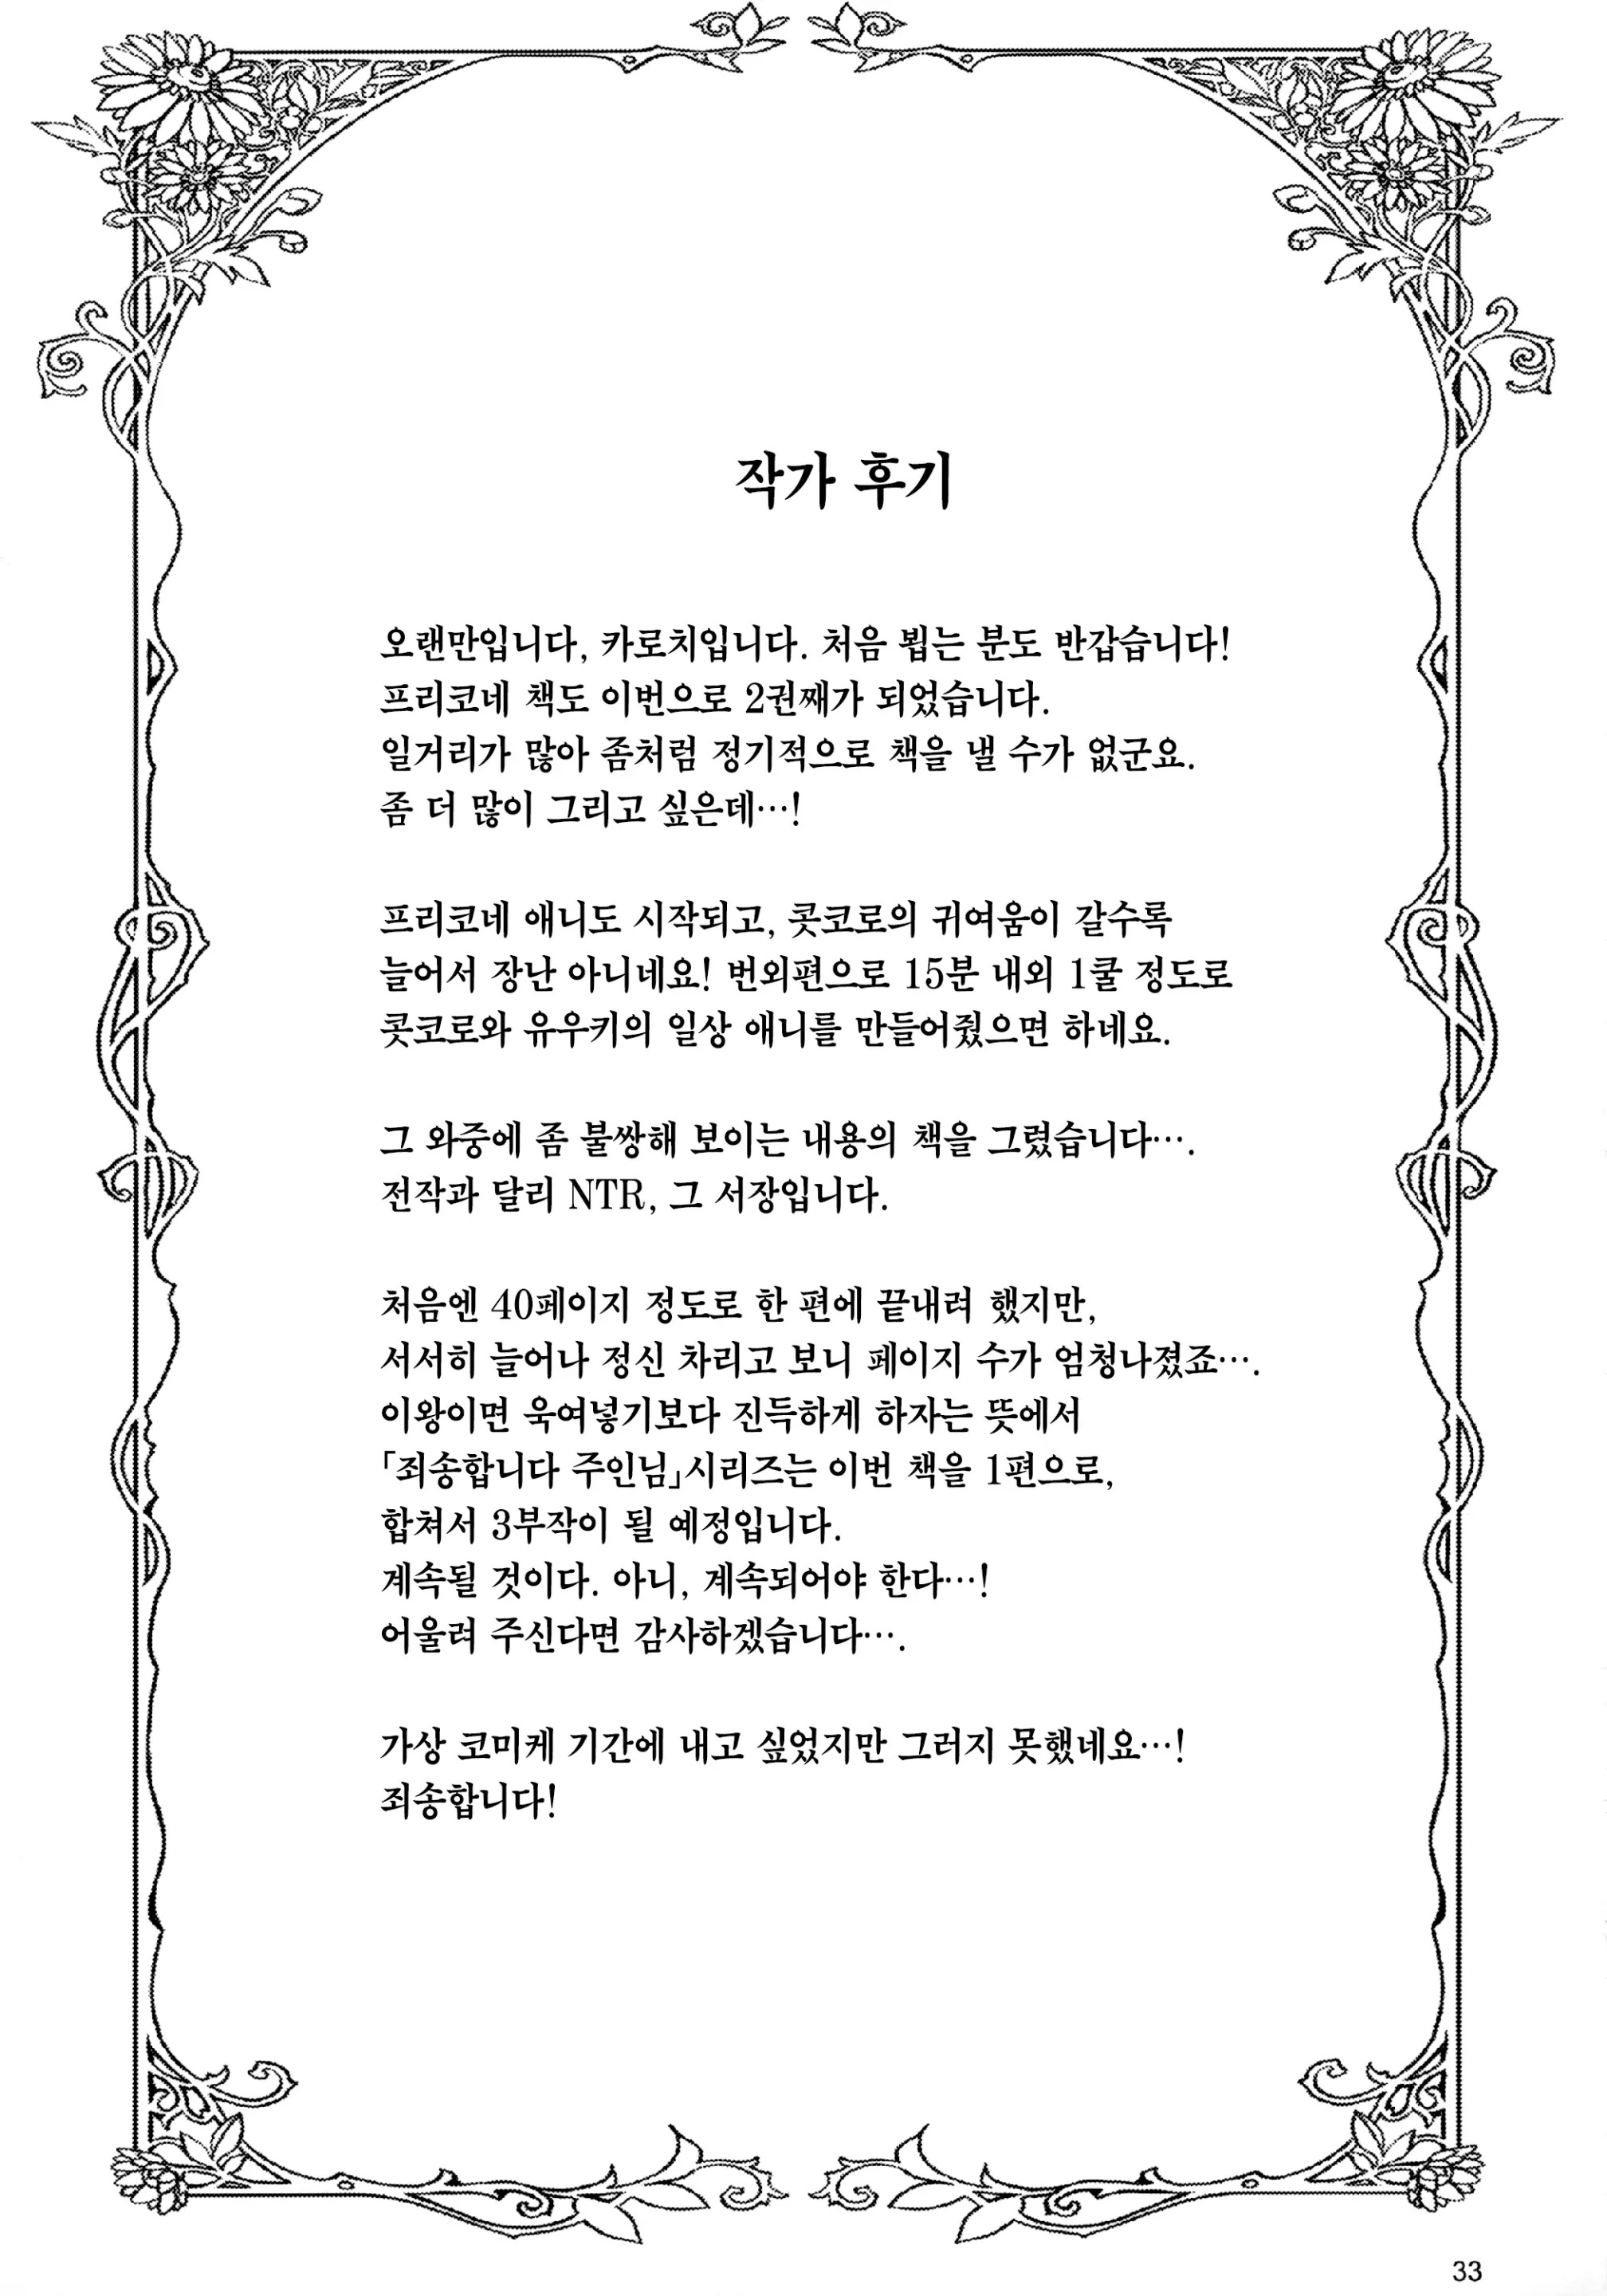 작가 후기
오랜만입니다, 카로치입니다. 처음 뵙는 분도 반갑습니다!
프리코네 책도 이번으로 2권째가 되었습니다.
일거리가 많아 좀처럼 정기적으로 책을 낼 수가 없군요.
좀 더 많이 그리고 싶은데…!
프리코네 애니도 시작되고, 콧코로의 귀여움이 갈수록
늘어서 장난 아니네요! 번외편으로 15분 내외 1쿨 정도로
콧코로와 유우키의 일상 애니를 만들어줬으면 하네요.
그 와중에 좀 불쌍해 보이는 내용의 책을 그렸습니다….
전작과 달리 NTR, 그 서장입니다.
처음엔 40페이지 정도로 한 편에 끝내려 했지만,
서서히 늘어나 정신 차리고 보니 페이지 수가 엄청나졌죠….
이왕이면 욱여넣기보다 진득하게 하자는 뜻에서
「죄송합니다 주인님」시리즈는 이번 책을 1편으로,
합쳐서 3부작이 될 예정입니다.
계속될 것이다. 아니, 계속되어야 한다…!
어울려 주신다면 감사하겠습니다….
가상 코미케 기간에 내고 싶었지만 그러지 못했네요…!
죄송합니다!
33